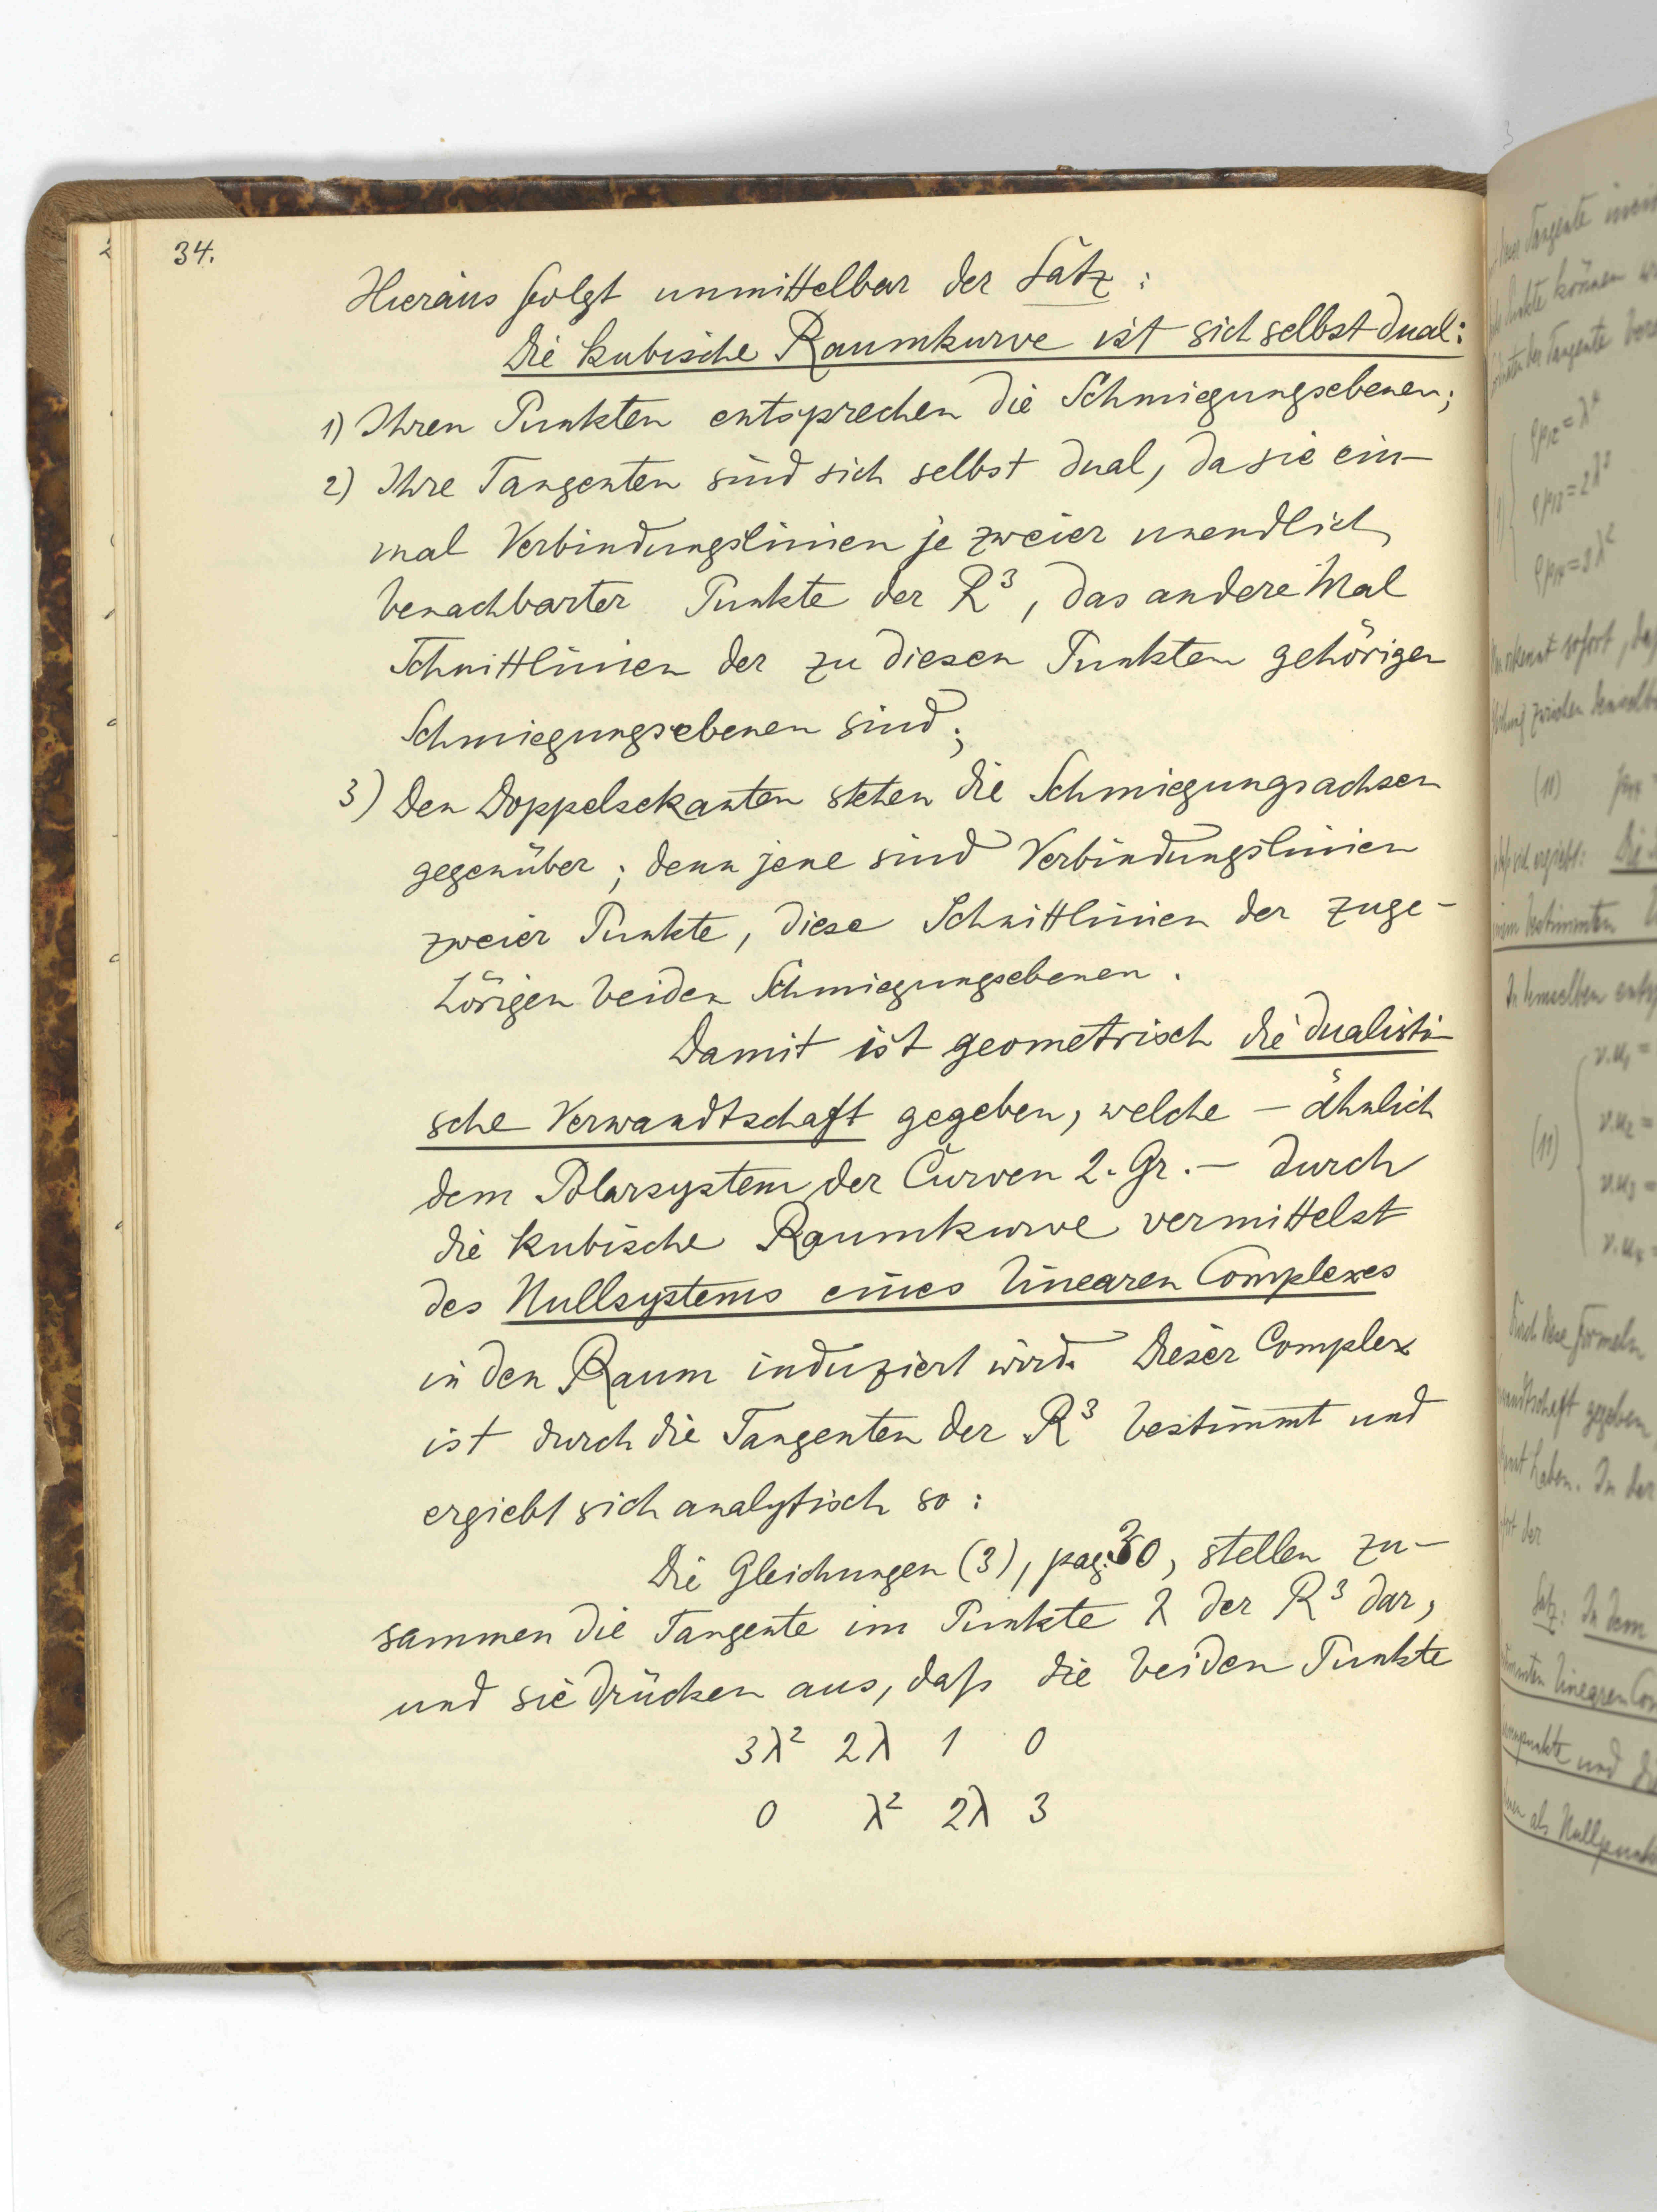 34.
Hieraus folgt unmittelbar der Satz:
Die kubische Raumkurve ist sich selbst dual:
1) Ihren Punkten entsprechen die Schmiegungsebenen;
2) Ihre Tangenten sind sich selbst dual, da sie ein-
mal Verbindungslinien je zweier unendlich
benachbarter Punkte der R³, das andere Mal
Schnittlinien der zu diesen Punkten gehörigen
Schmiegungsebenen sind;
3) Den Doppelsekanten stehen die Schmiegungsachsen
gegenüber; denn jene sind Verbindungslinien
zweier Punkte, diese Schnittlinien der zuge-
hörigen beiden Schmiegungsebenen.
Damit ist geometrisch die dualisti-
sche Verwandtschaft gegeben, welche – ähnlich
dem Polarsystem der Curven 2. Gr. – durch
die kubische Raumkurve vermittelst
des Nullsystems eines linearen Complexes
in den Raum induziert wird. Dieser Complex
ist durch die Tangenten der R³ bestimmt und
ergiebt sich analytisch so:
Die Gleichungen (3), pag. 30, stellen zu-
sammen die Tangente im Punkte λ der R³ dar,
und sie drücken aus, daß die beiden Punkte
3λ² 2λ 1 0
0 λ² 2λ 3
Tangente
Punkte können
der Tangente
ρp₁₃=2λ³
ρp₁₄=3λ²
erkennt sofort,
zwischen
(10)
sich ergiebt: Die
bestimmten
In demselben
(11)
ν.u₁ =
ν.u₂ =
ν.u₃ =
ν.u₄ =
Durch diese Formeln
wandtschaft gegeben
haben. In der
der
Satz: In dem
linearen
und die
als Nullpunkt